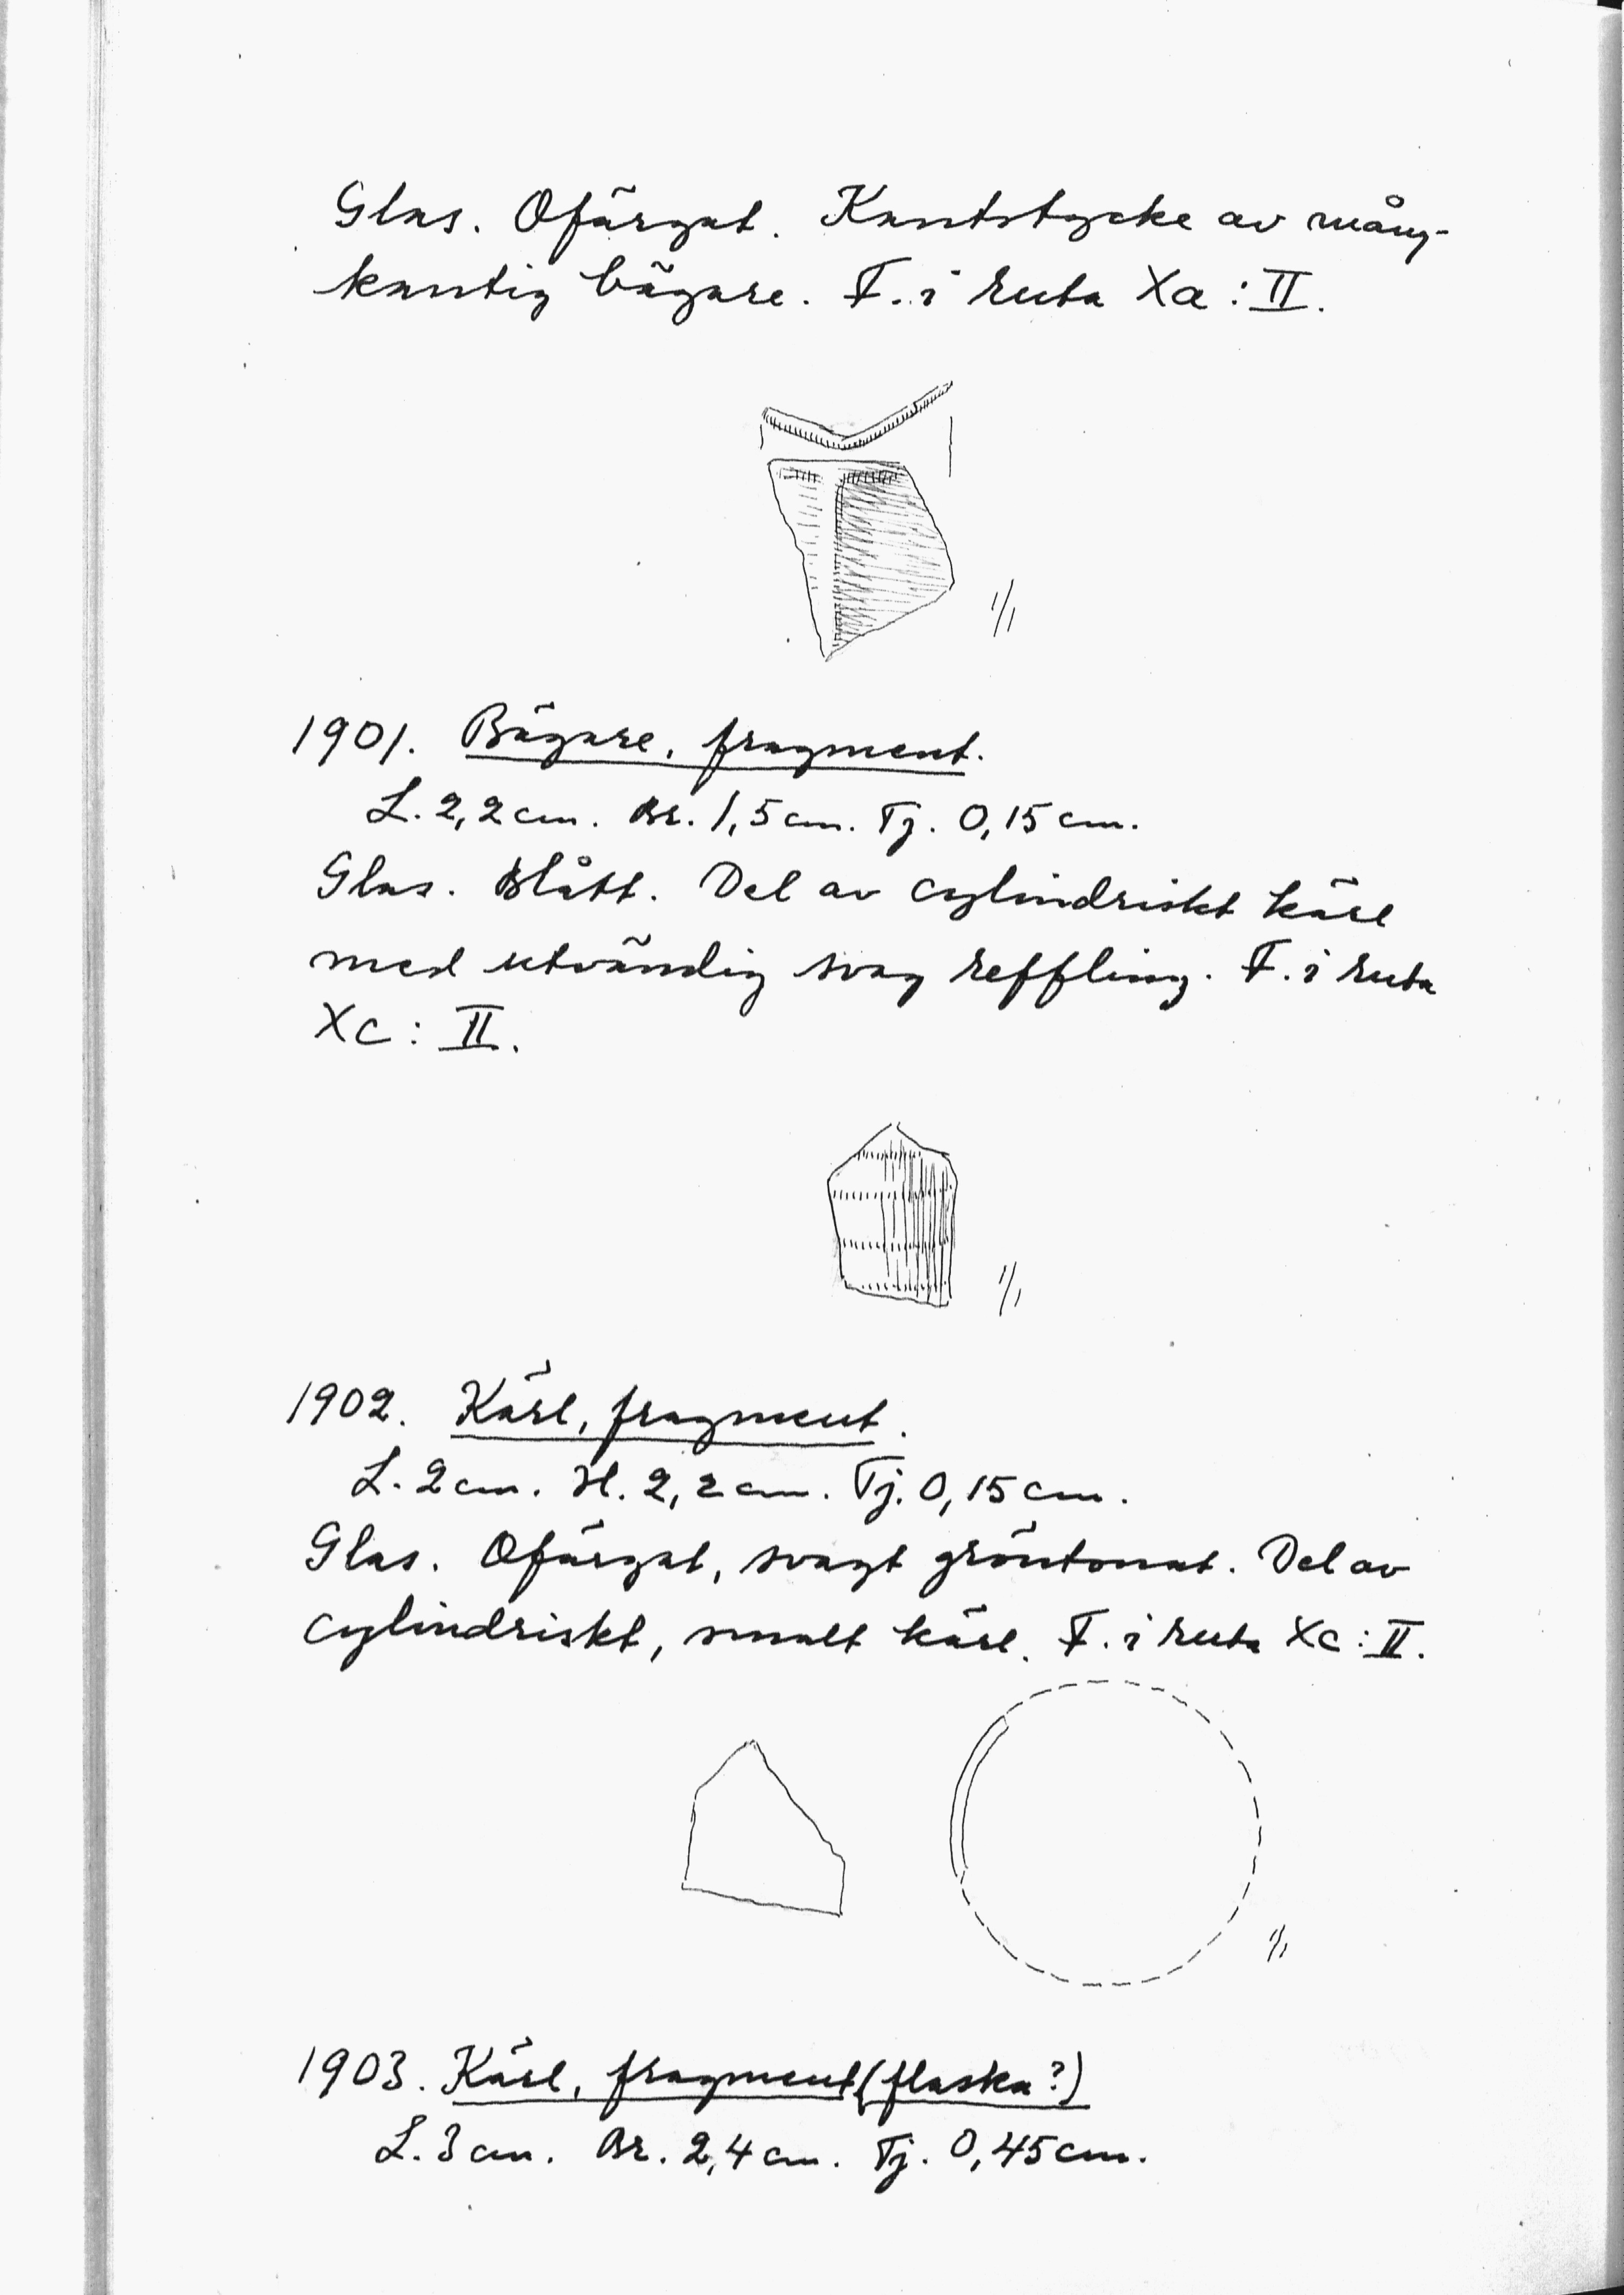 Glas. Ofärgat. Kantstycke av mång-
kantig bägare. F. i ruta Xa : II.
1/1
1901. Bägare, fragment.
L. 2,2 cm. Br. 1,5 cm. Tj. 0,15 cm.
Glas. Blått. Del av cylindriskt kärl
med utvändig svag reffling. F. i ruta
Xc : II.
1/1
1902. Kärl, fragment.
L. 2 cm. H. 2,2 cm. Tj. 0,15 cm.
Glas. Ofärgat, svagt gröntonat. Del av
cylindriskt, smalt kärl. F. i ruta Xc : II.
1/1
1903. Kärl, fragment (flaska?)
L. 3 cm. Br. 2,4 cm. Tj. 0,45 cm.